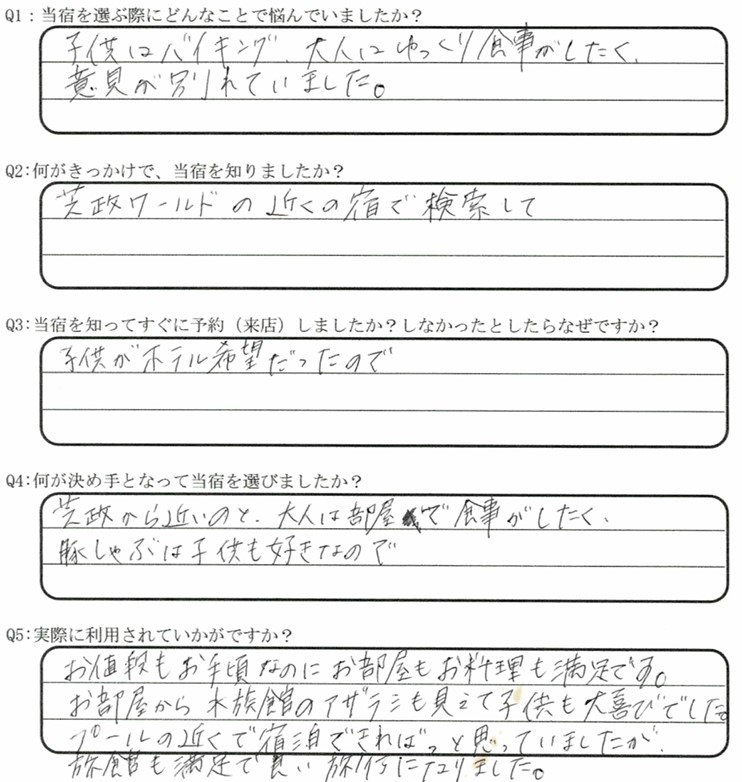 Q1：当宿を選ぶ際にどんなことで悩んでいましたか？
子供はバイキング、大人はゆっくり食事がしたく、
意見が別れていました。
Q2:何がきっかけで、当宿を知りましたか？
芝政ワールドの近くの宿で検索して
Q3:当宿を知ってすぐに予約（来店）しましたか？しなかったとしたらなぜですか？
子供がホテル希望だったので
Q4:何が決め手となって当宿を選びましたか？
芝政から近いのと、大人は部屋で食事がしたく、
豚しゃぶは子供も好きなので
Q5:実際に利用されていかがですか？
お値段もお手頃なのにお部屋もお料理も満足です。
お部屋から水族館のアザラシも見えて子供も大喜びでした。
プールの近くで宿泊できればっと思っていましたが、
旅館も満足で良い旅行になりました。